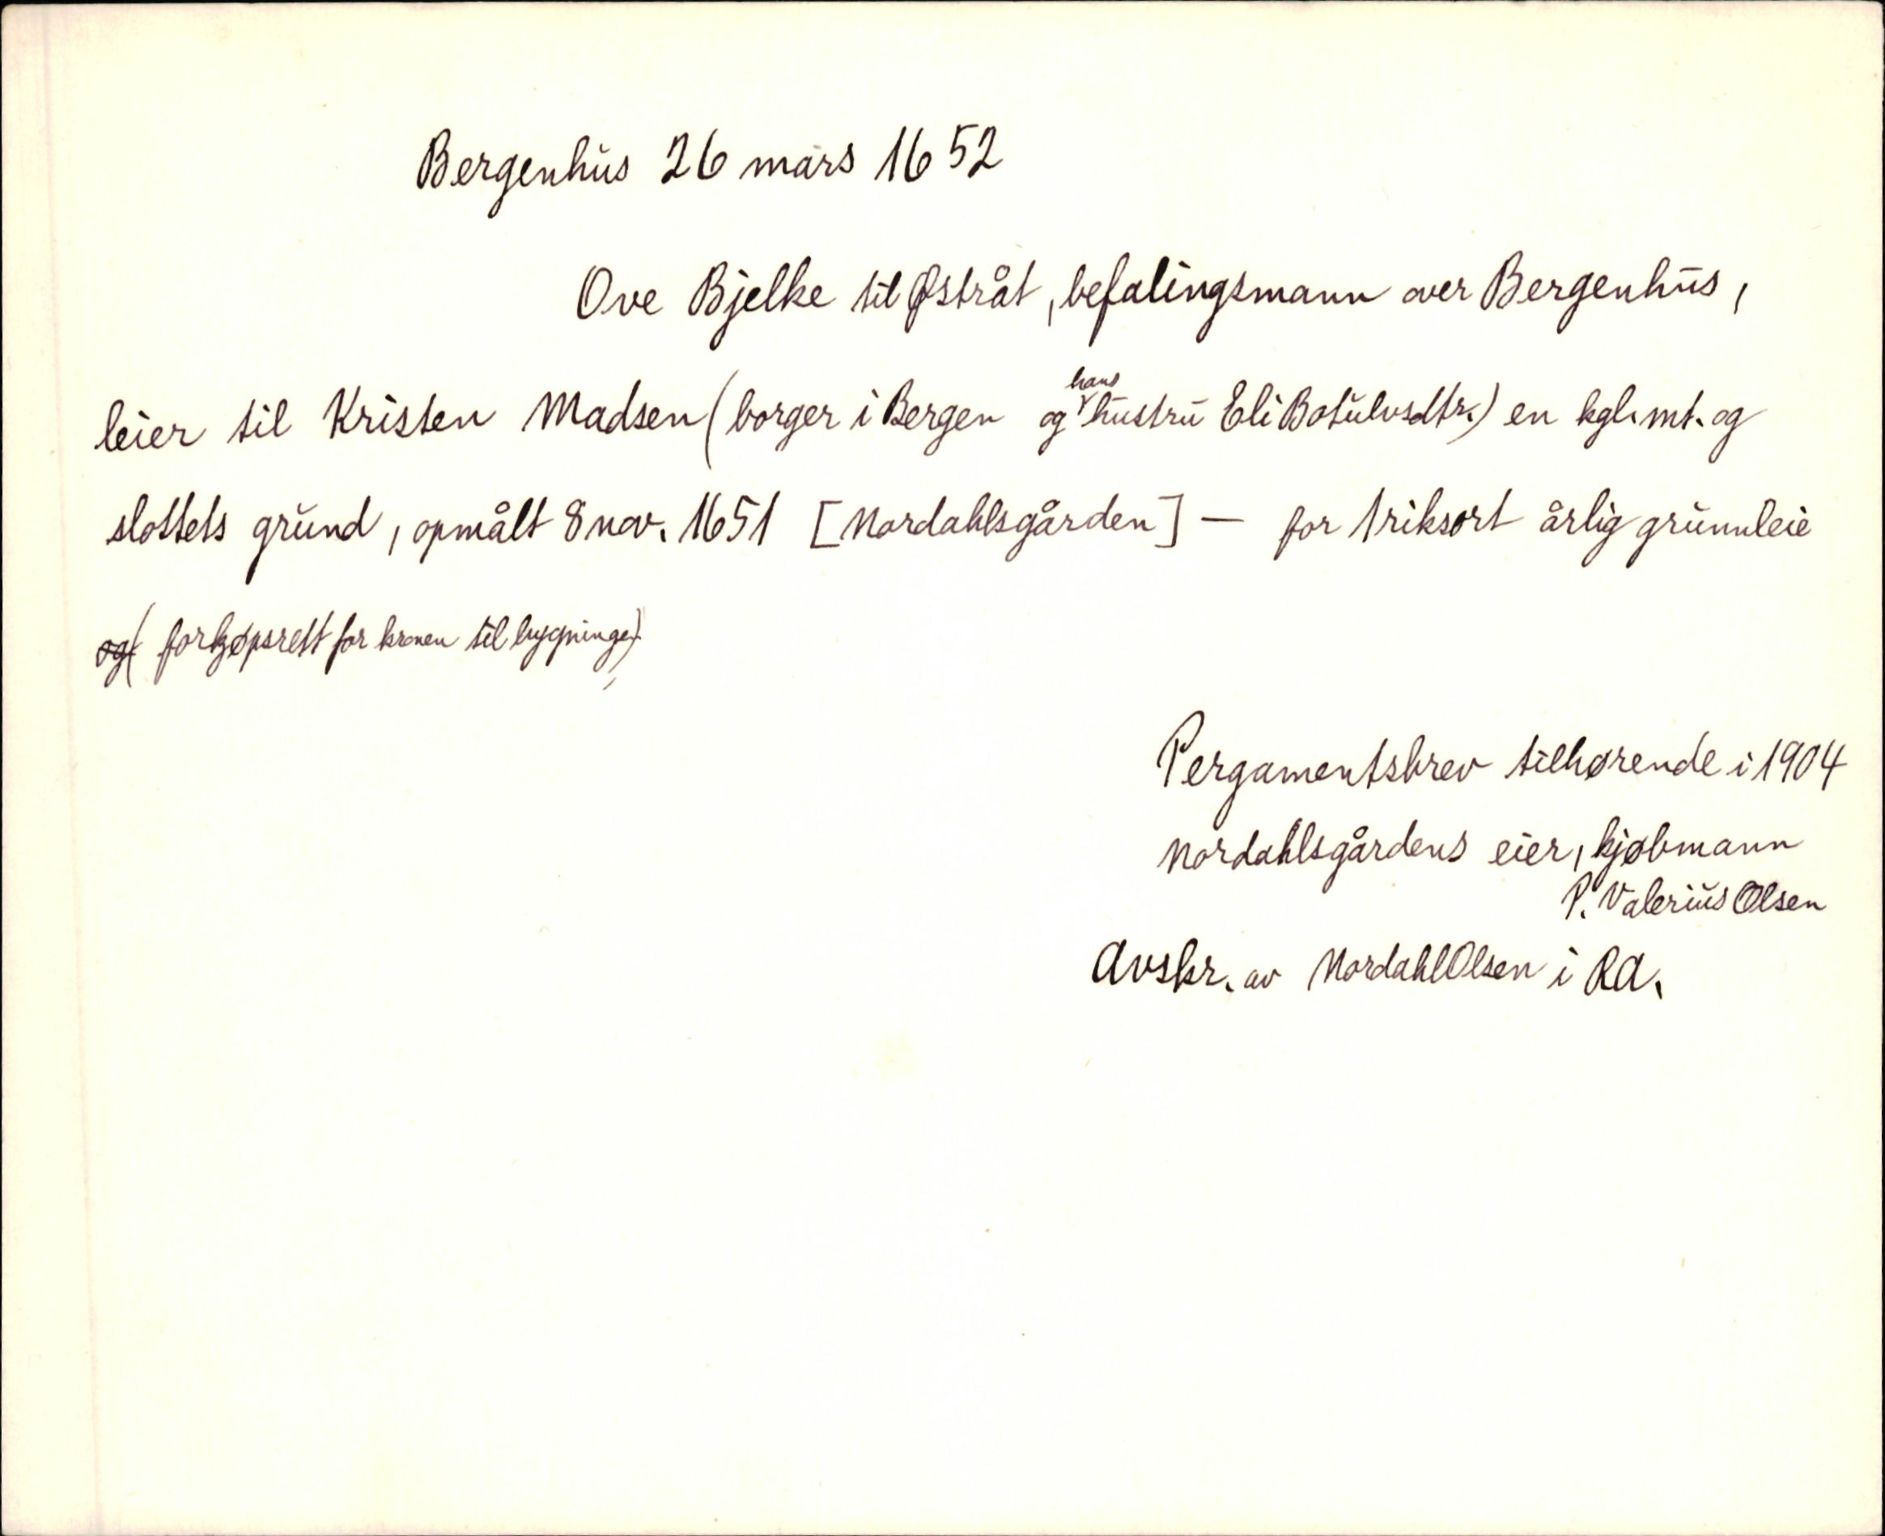 Bergenhus 26 mars 1652
Ove Bjelke til Østråt, befalingsmann over Bergenhus,
leier til Kristen Madsen (borger i Bergen og hans hustru Eli Botulvsdtr.) en kgl. mt. og
slottets grund, opmålt 8 nov. 1651 [Nordahlsgården] — for 1 riksort årlig grunnleie
og (forkjøpsrett for kronen til bygninger).
Pergamentsbrev tilhørende i 1904
Nordahlsgårdens eier, kjøbmann
P. Valerius Olsen
Avskr. av Nordahl Olsen i RA.